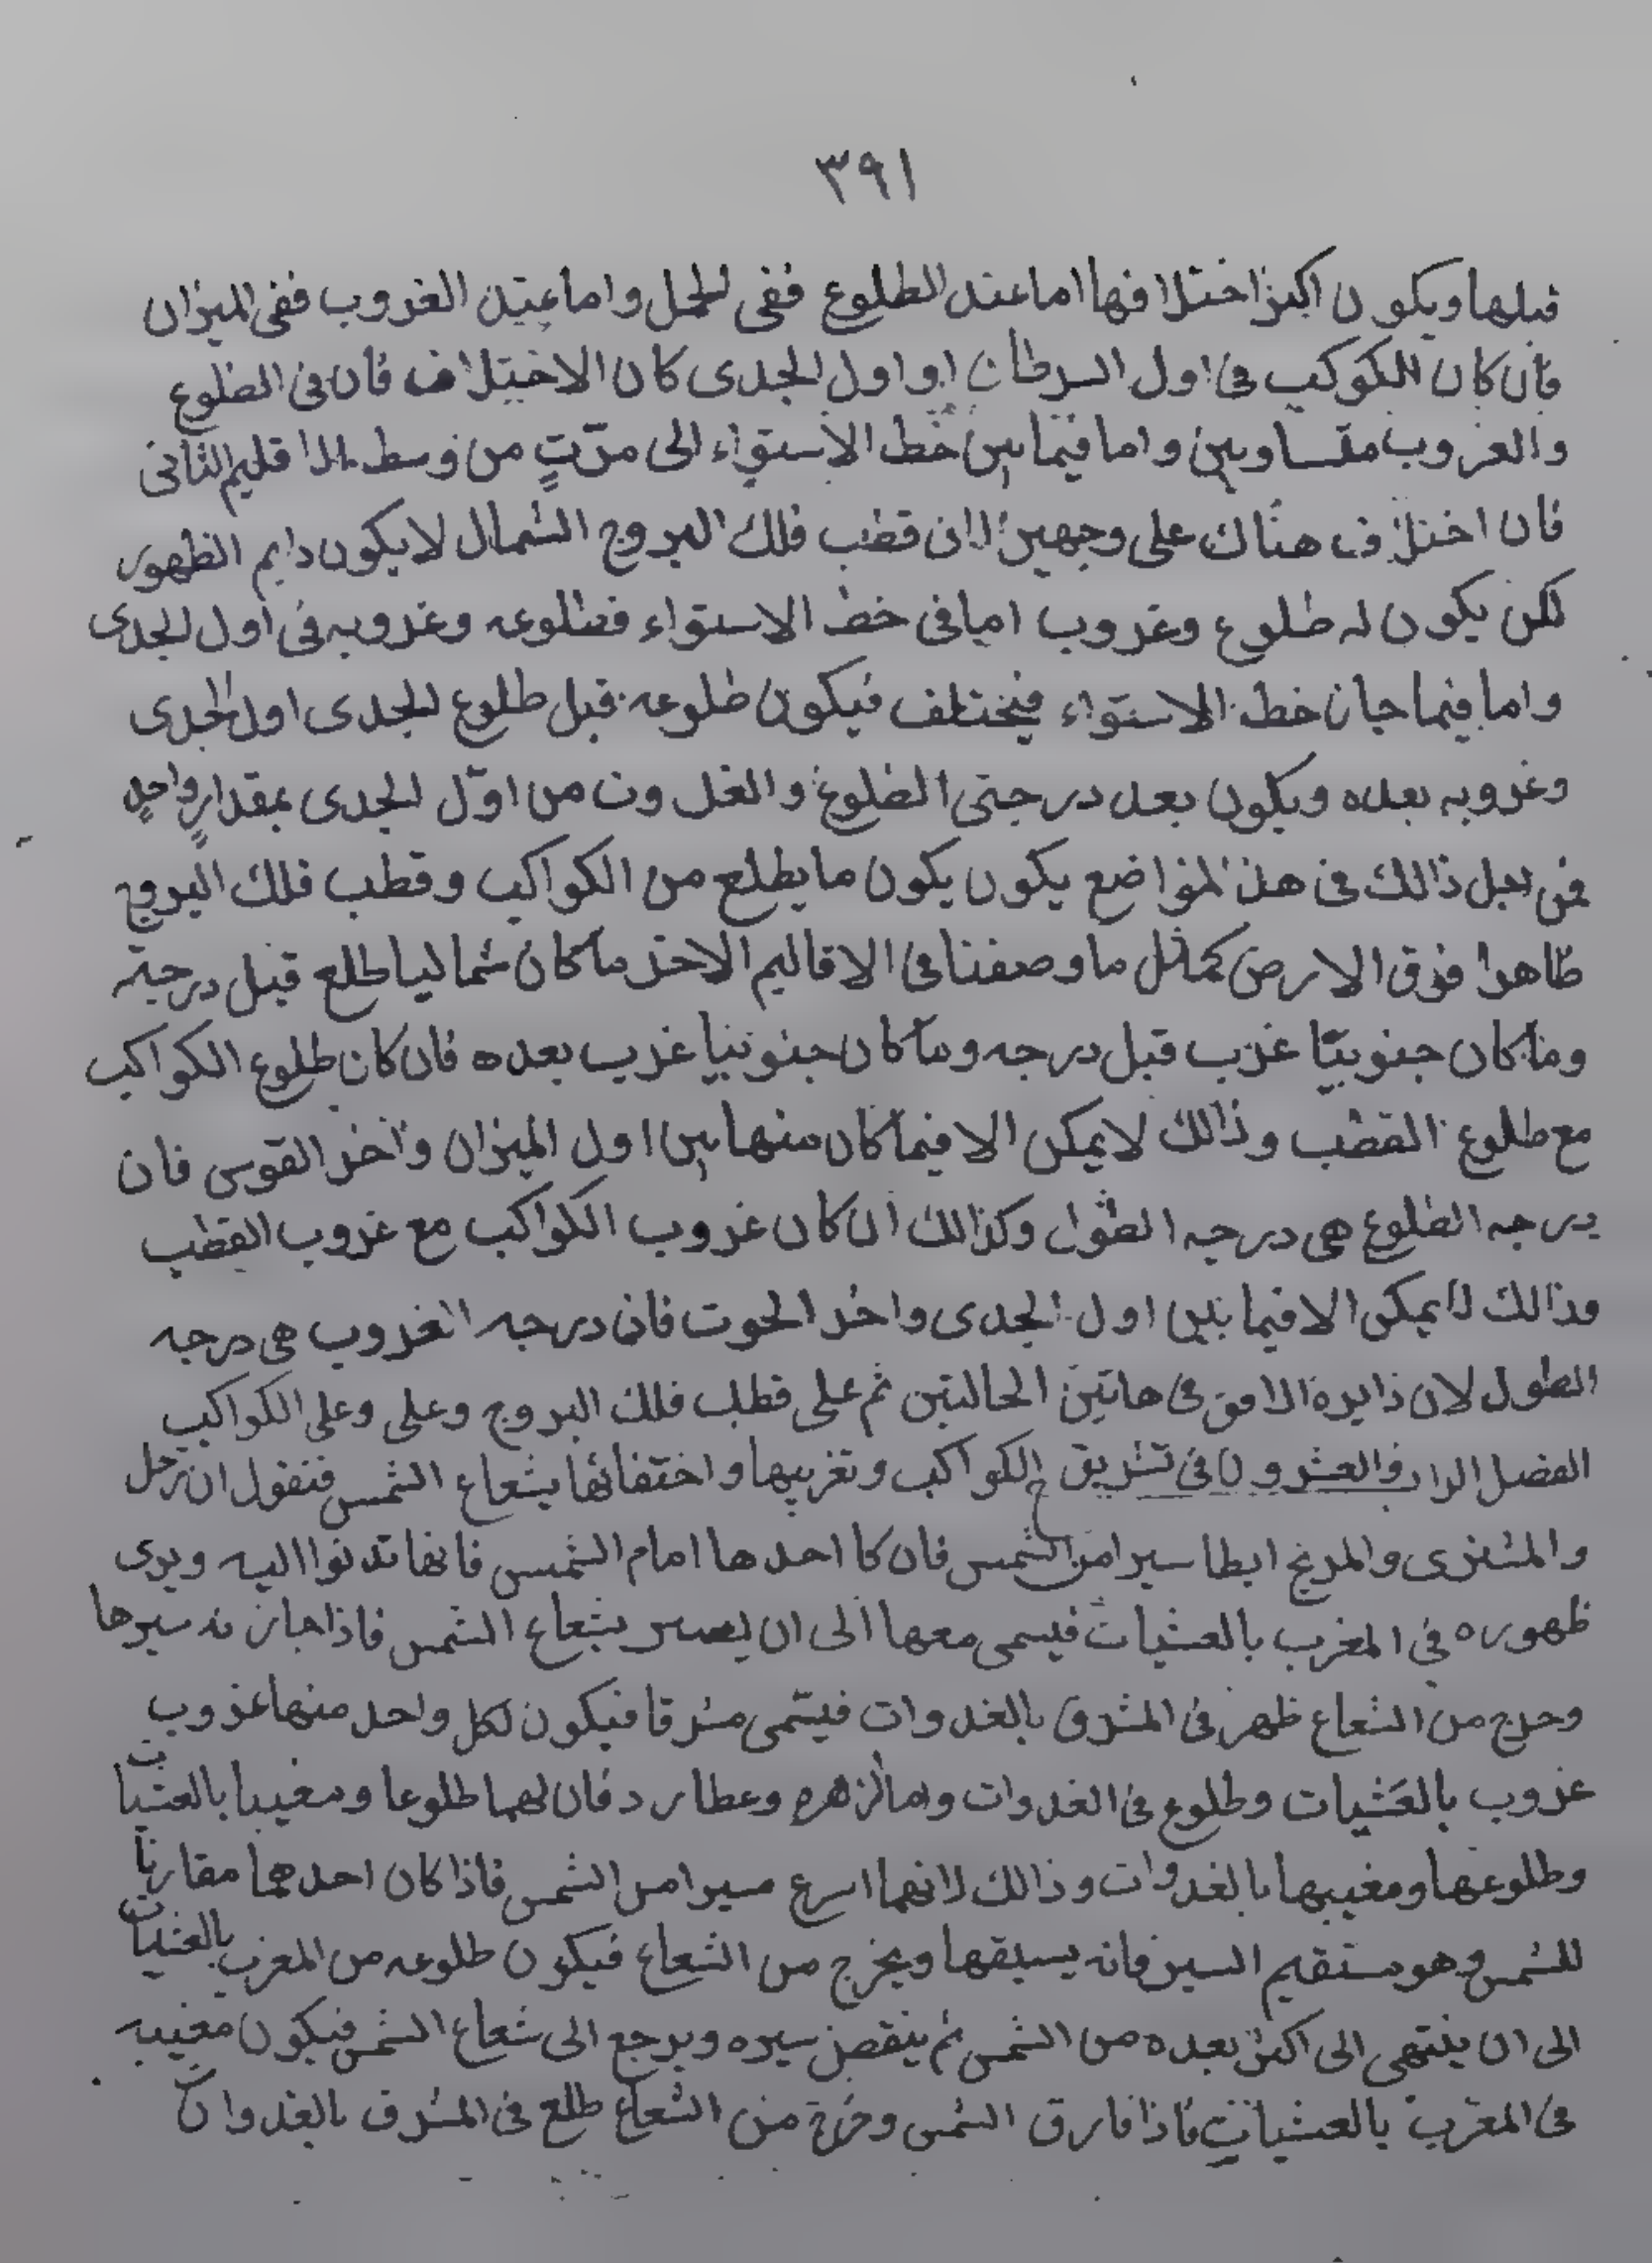 ٣٩١
قبلها ويكون اكثر اختلافها اما عند الطلوع ففى الحمل واما عند الغروب ففى الميزان
فان كان الكوكب فى اول السرطان او اول الجدى كان الاختلاف فان فى الطلوع
والغروب متساويين واما فيما بين خط الاستواء الى من وسط الاقليم الثانى
فان اختلاف هناك على وجهين لان قطب فلك البروج الشمال لا يكون دايم الظهور
لكن يكون له طلوع وغروب اما فى خط الاستواء فطلوعه وغروبه فى اول الجدى
واما فيما جان خط الاستواء فيختلف فيكون طلوعه قبل طلوع الجدى اول الجدى
وغروبه بعده ويكون بعد درجتى الطلوع والغروب من اوّل الجدى بمقدارٍ واحدٍ
فمن اجل ذالك فى هذا المواضع يكون يكون ما يطلع من الكواكب وقطب فلك البروج
ظاهرا فوق الارض كمثل ما وصفنا فى الاقاليم الاخر ما كان شماليا طلع قبل درجته
وما كان جنوبيّا غرب قبل درجه وما كان جنوبيا غرب بعده فان كان طلوع الكواكب
مع طلوع القطب وذالك لا يمكن الا فيما كان منها بين اول الميزان واخر القوس فان
درجه الطلوع هى درجه الطول وكذالك ان كان غروب الكواكب مع غروب القطب
وذالك لا يمكن الا فيما بين اول الجدى واخر الحوت فان درجه الغروب هى درجه
الطول لان دايرة الافق فى هاتين الحالتين ثم على قطب فلك البروج وعلى وعلى الكواكب
الفصل والعشرون فى تشريق الكواكب وتغريبها واختفائها بشعاع الشمس فنقول ان زحل
والمشترى والمريخ ابطا سيرا من الشمس فان كا احدها امام الشمس فانها تدنوا اليه ويرى
ظهوره فى المغرب بالعشيات فيسمى معها الى ان يصير بشعاع الشمس فاذا جازته سيرها
وخرج من الشعاع ظهر فى المشرق بالغدوات فيسّمى مشرقا فيكون لكل واحد منها غروب
غروب بالعشيات وطلوع فى الغدوات واما الزهره وعطارد فان لهما طلوعا ومغيبا بالعشيات
وطلوعها ومغيبها بالغدوات وذالك لانهما اسرع سيرا من الشمس فاذا كان احدهما مقارنا
للشمس وهو مستقيم السير فانه يسبقها ويخرج من الشعاع فيكون طلوعه من المغرب بالعشيات
الى ان ينتهى الى اكثر بعده من الشمس ثم ينقص سيره ويرجع الى شعاع الشمس فيكون مغيبه
فى المغرب بالعشيات فاذا فارق الشمس وخرج من الشعاع طلع فى المشرف بالغدوات